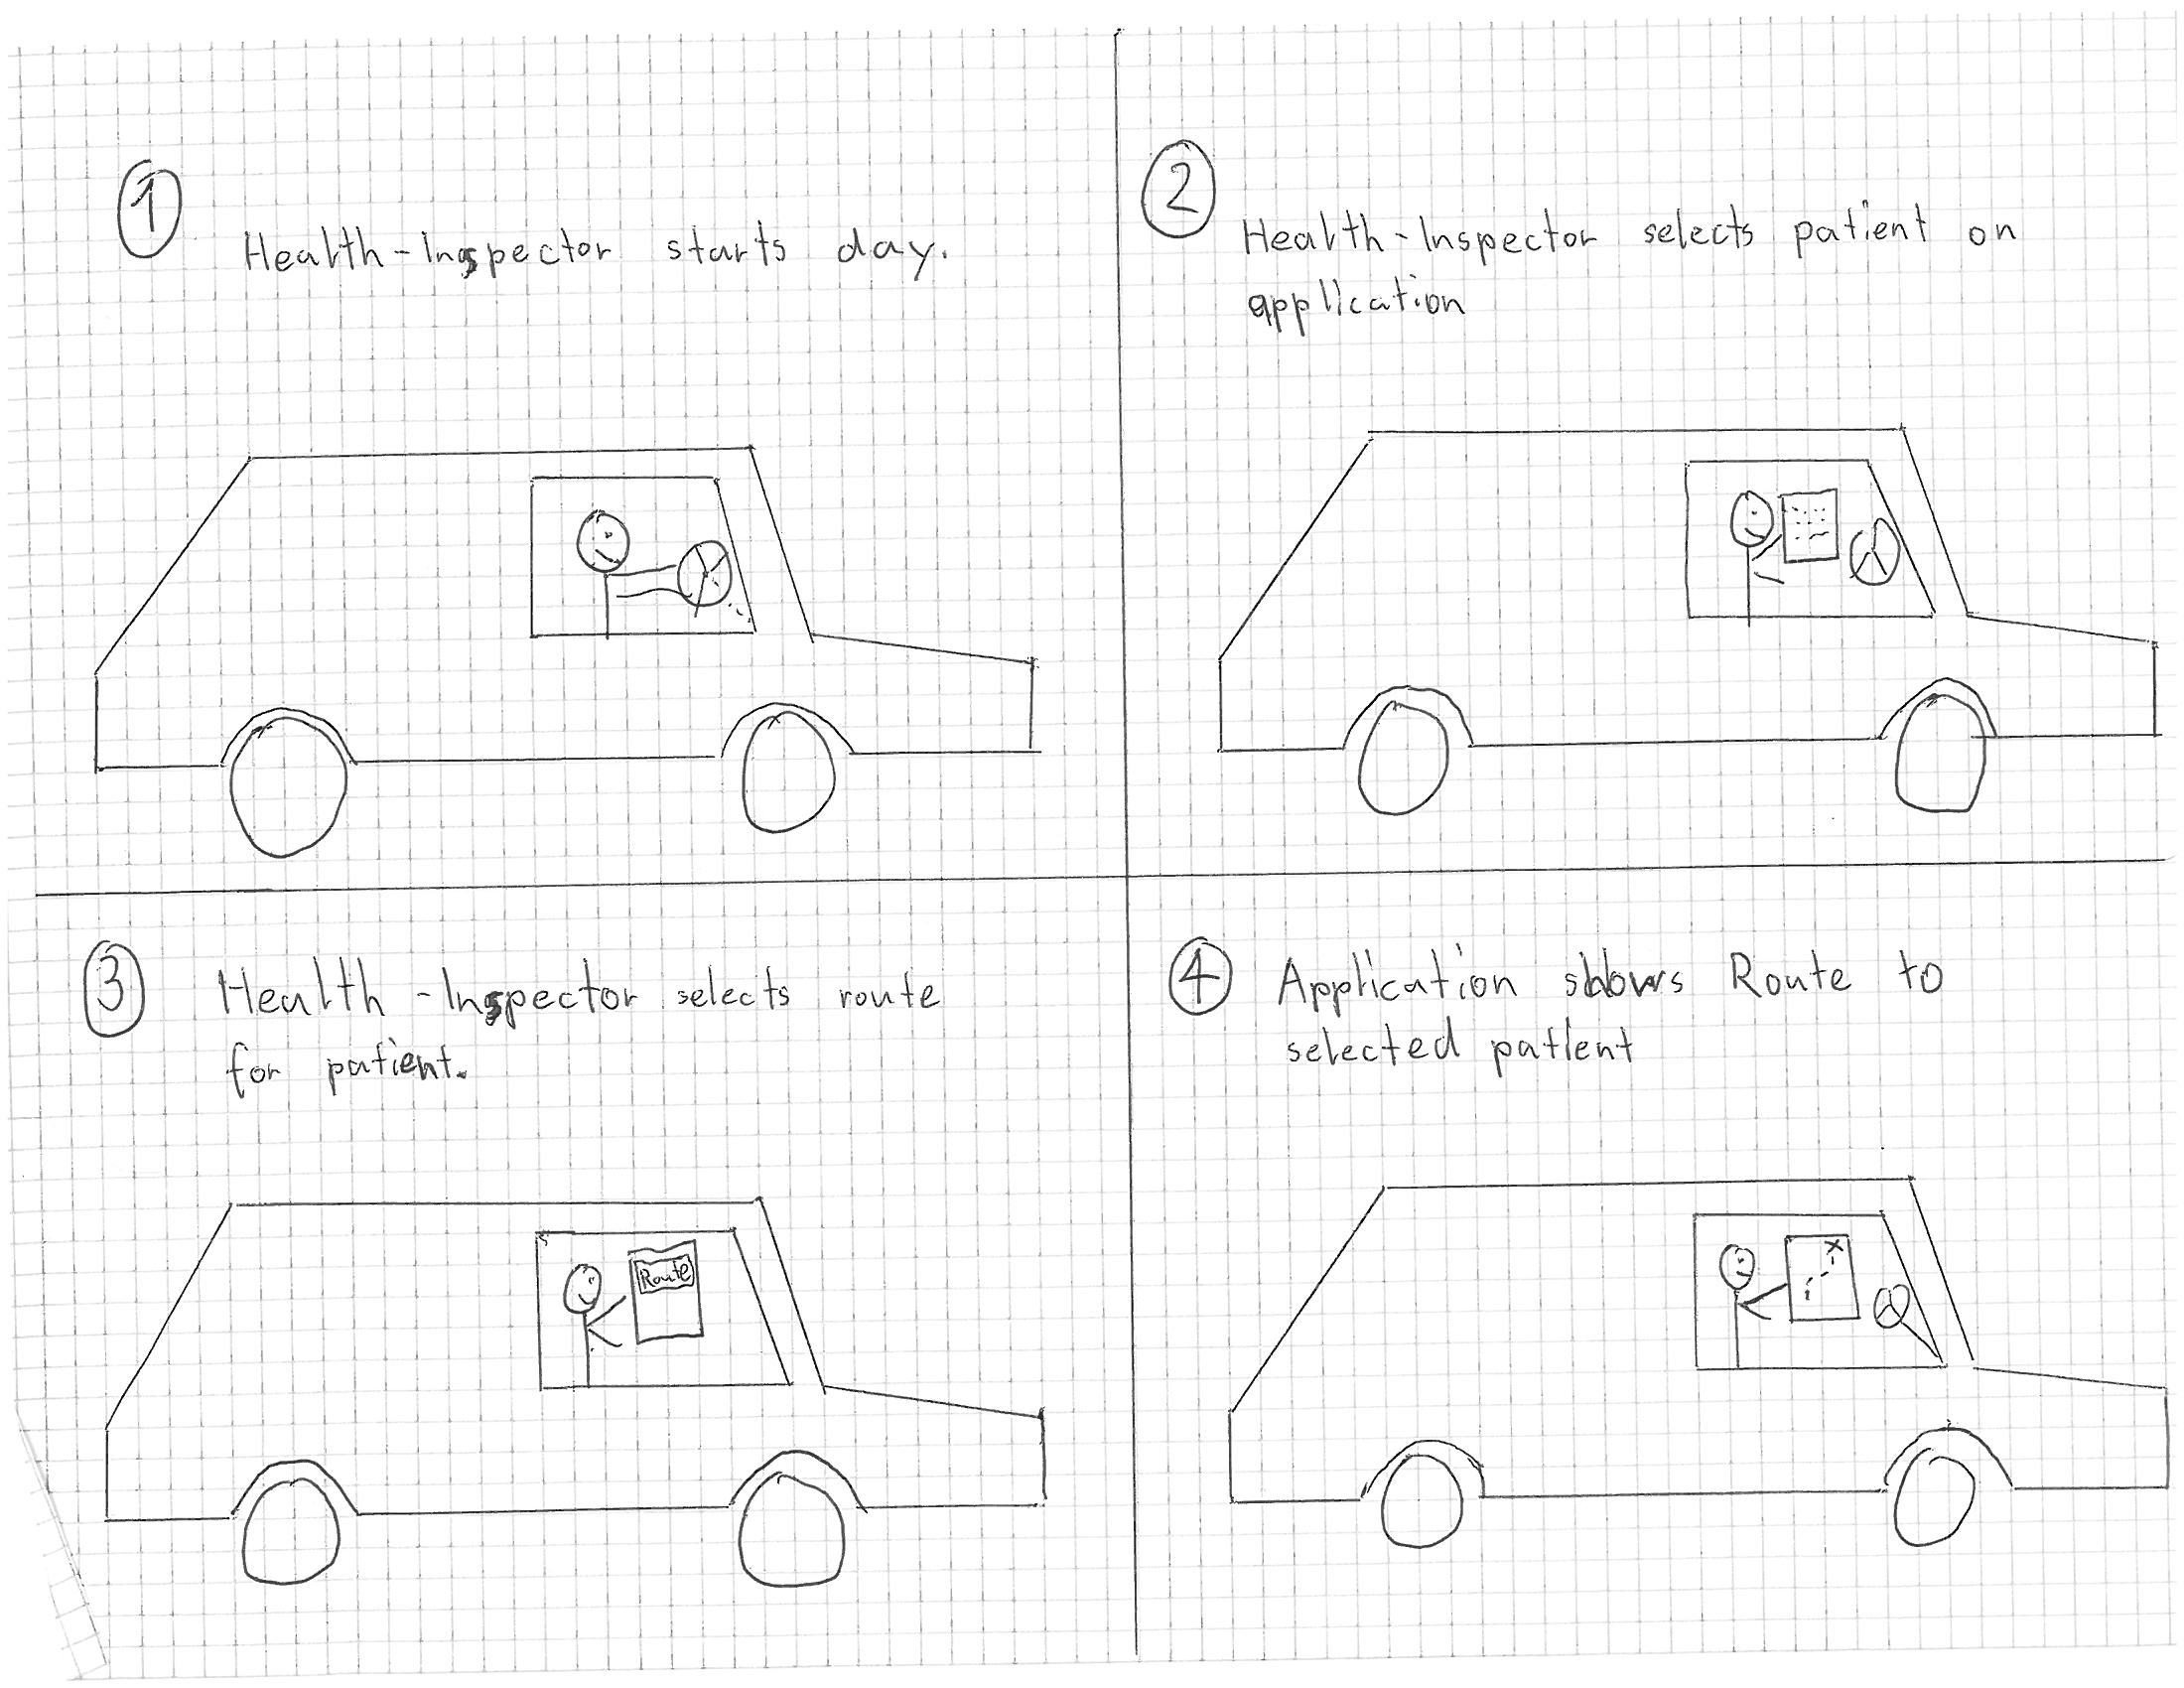 1
Health-Inspector starts day.
2
Health-Inspector selects patient on
application
3
Health-Inspector selects route
for patient.
Route
4
Application shows Route to
selected patient
X